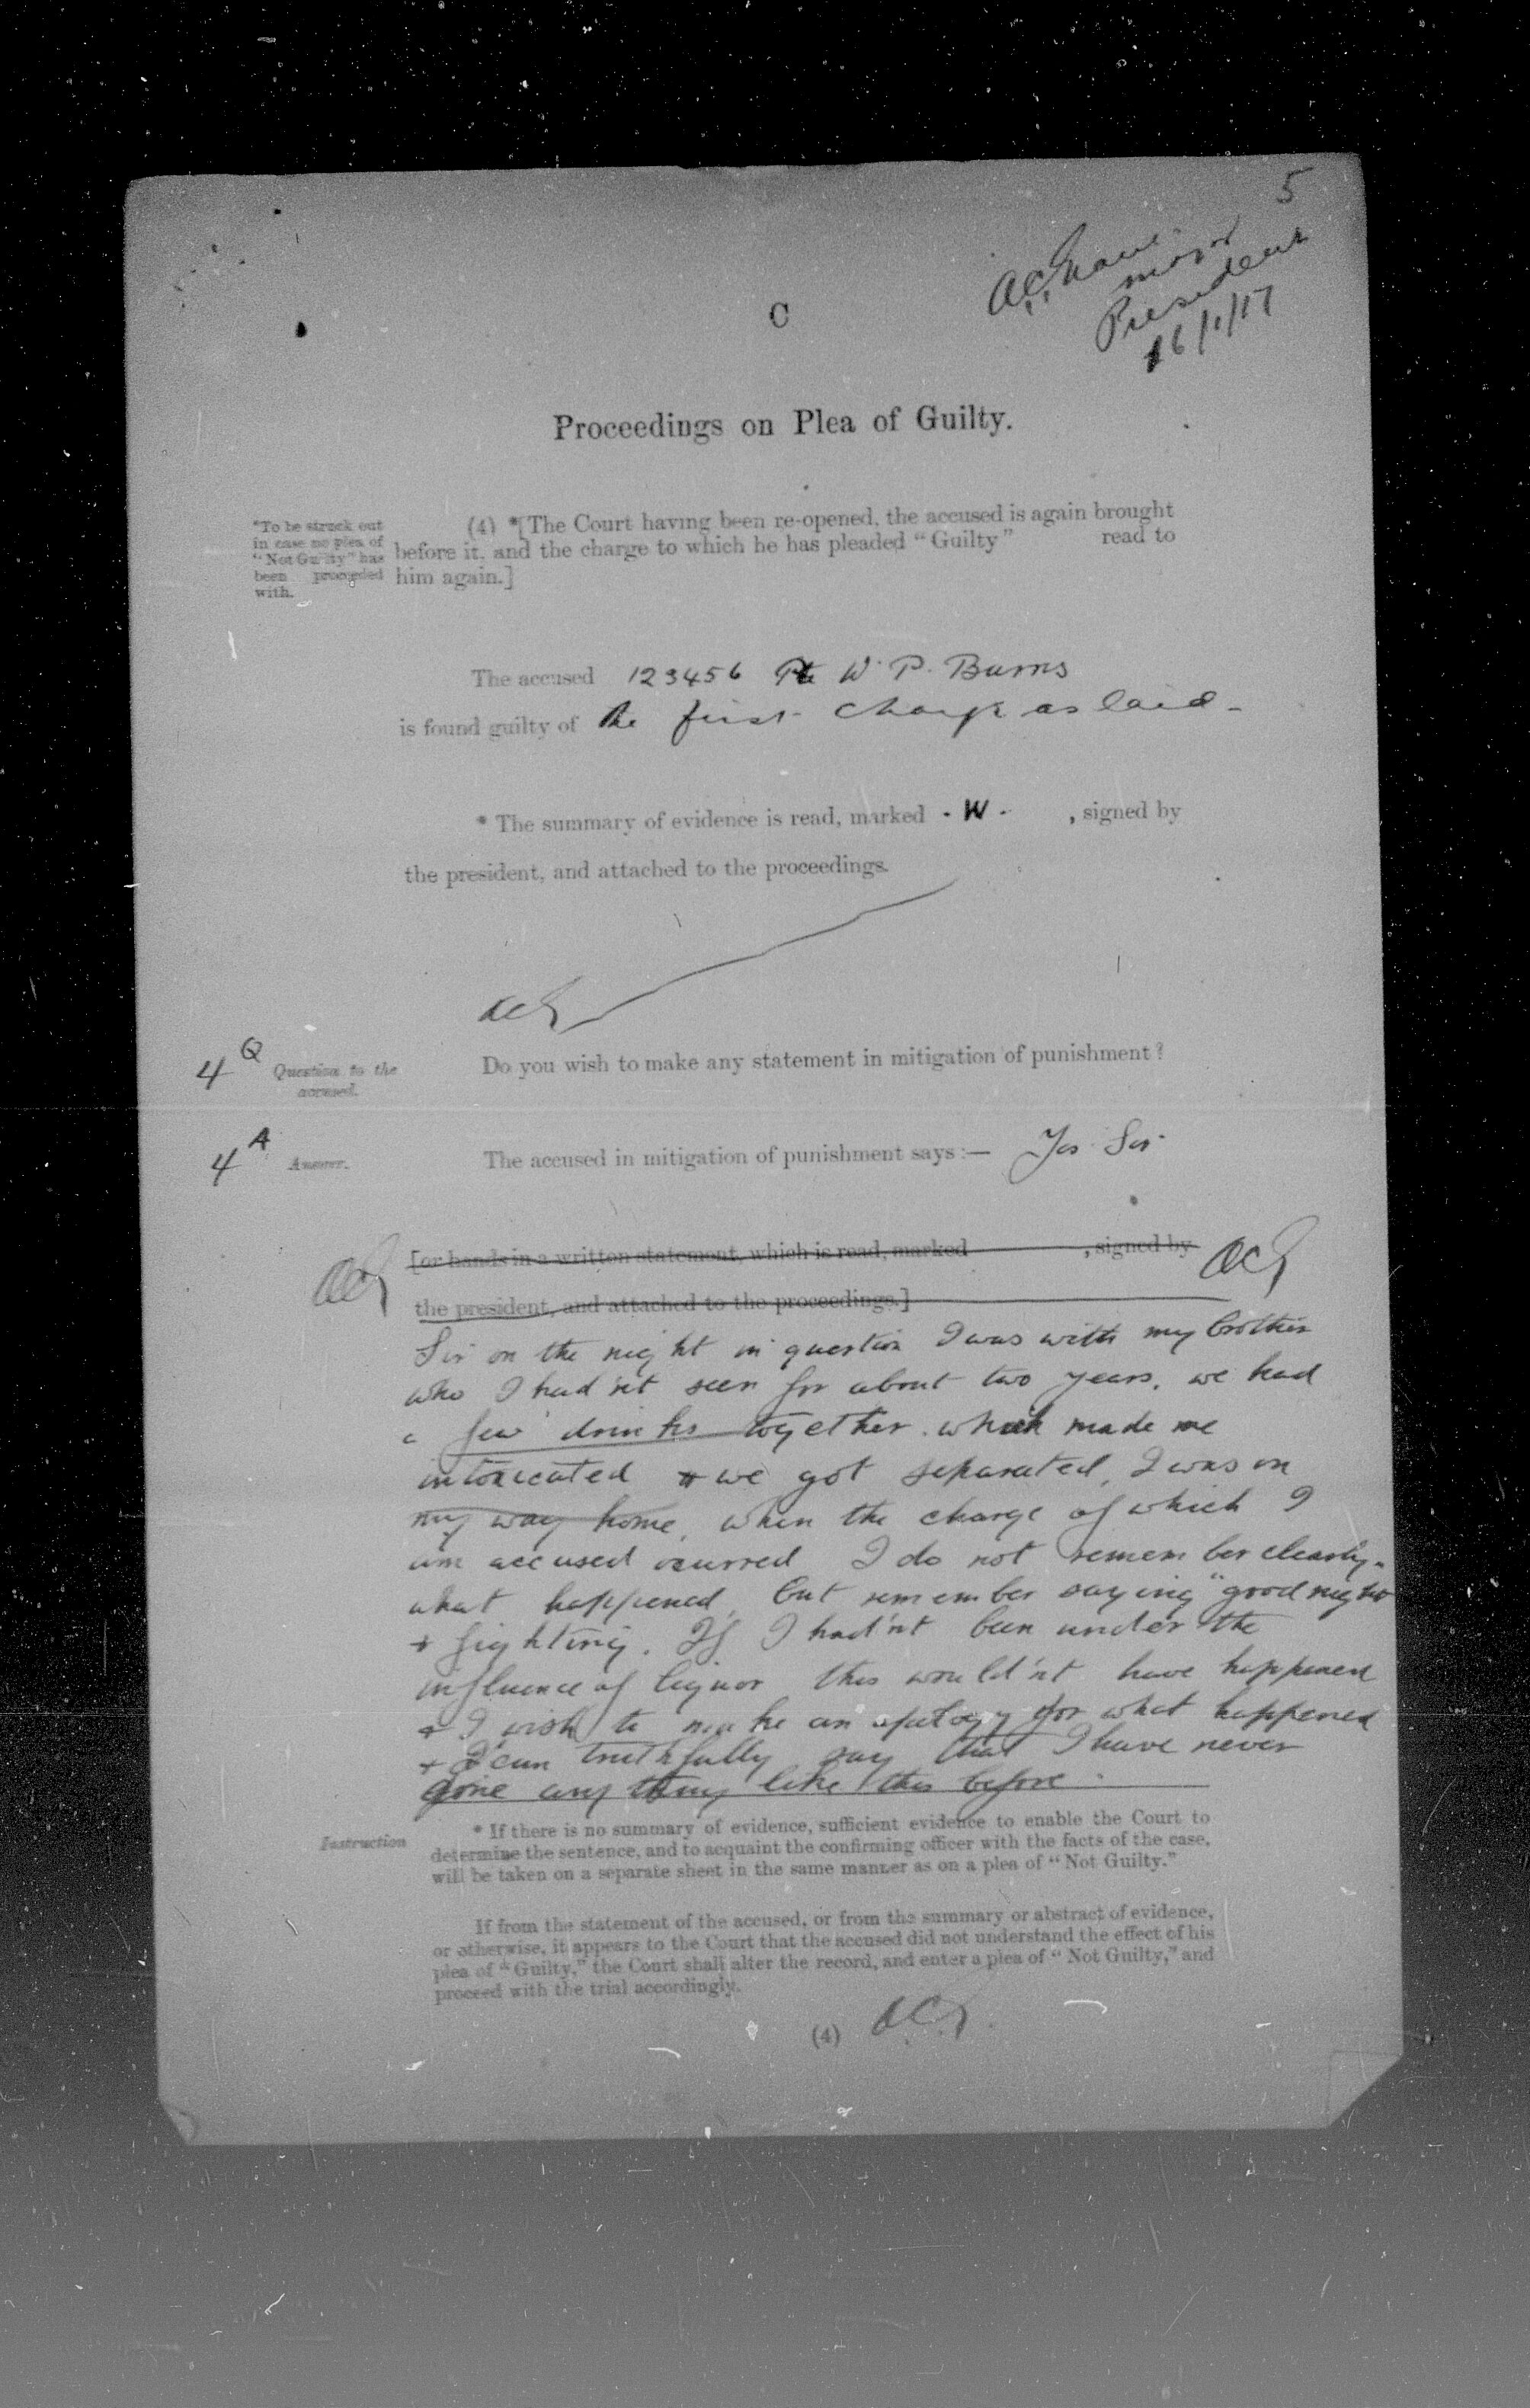 5
Major
President
16/1/17
C
Proceedings on Plea of Guilty.
*To be struck out
in case no plea of
"Not Guilty" has
been proceeded
with.
(4) *[The Court having been re-opened, the accused is again brought
before it, and the charge to which he has pleaded "Guilty" read to
him again.]
The accused 123456 Pte W. P. Burns
is found guilty of the first charge as laid -
* The summary of evidence is read, marked - W - , signed by
the president, and attached to the proceedings.
4 Q Question to the
accused.
Do you wish to make any statement in mitigation of punishment?
4 A Answer.
The accused in mitigation of punishment says:— Yes Sir
[or hands in a written statement, which is read, marked , signed by
the president, and attached to the proceedings.]
Sir on the night in question I was with my brother
who I had'nt seen for about two years, we had
a few drinks together. which made me
intoxicated + we got separated, I was on
my way home, when the charge of which I
am accused ocurred I do not remember clearly
what happened, but remember saying "good night
+ fighting. If I had'nt been under the
influence of liquor this would'nt have happened
+ I wish to make an apology for what happened
+ I can truthfully say that I have never
done any thing like this before.
Instruction
* If there is no summary of evidence, sufficient evidence to enable the Court to
determine the sentence, and to acquaint the confirming officer with the facts of the case,
will be taken on a separate sheet in the same manner as on a plea of "Not Guilty."
If from the statement of the accused, or from the summary or abstract of evidence,
or otherwise, it appears to the Court that the accused did not understand the effect of his
plea of "Guilty," the Court shall alter the record, and enter a plea of "Not Guilty," and
proceed with the trial accordingly.
(4)